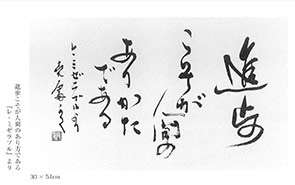 進歩
こそが人間の
ありかた
である
レ・ミゼラブルより
進歩こそが人間のあり方である
『レ・ミゼラブル』より
30×51cm